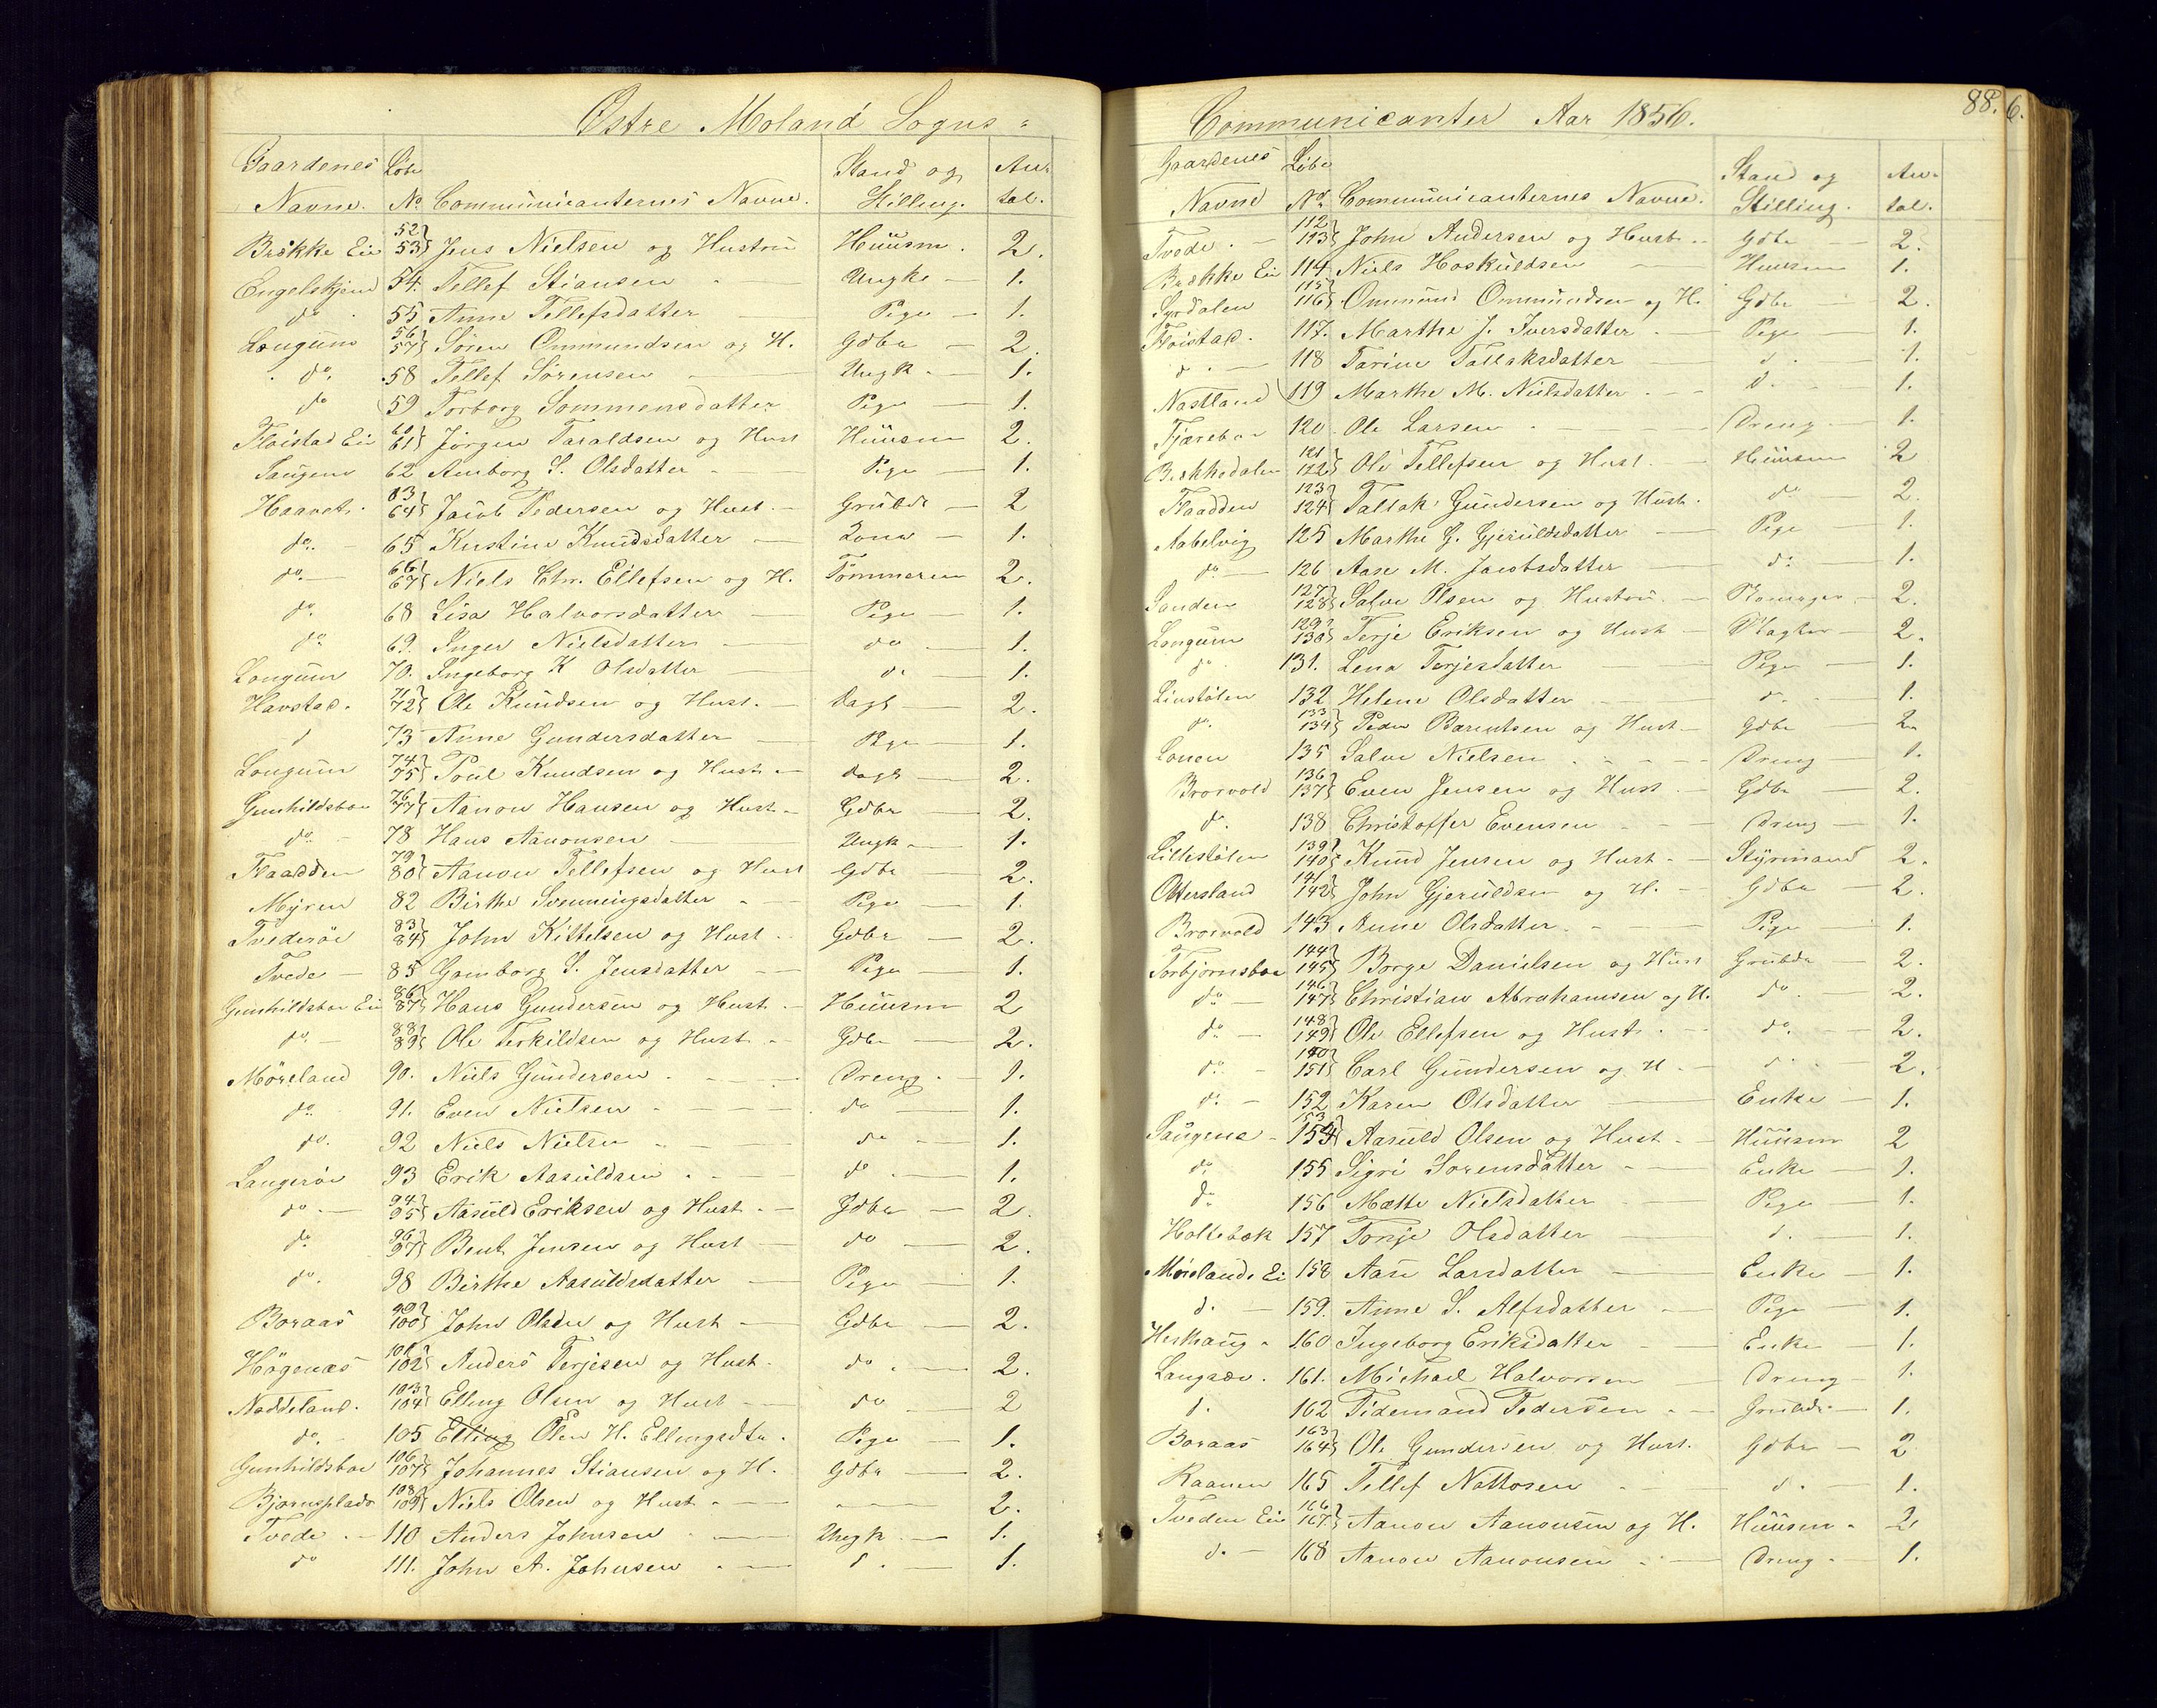 Østre Moland Sogns =
Gaardenes Løbe Stand og An-
Navne. No Communicanternes Navne. Stilling. tal.
Brække Ei 52 53 Jens Nielsen og Hustru Huusm. 2.
Engelskjøn 54. Tellef Stiansen - Ungk. - 1.
do. 55 Anne Tellefsdatter Pige - 1.
Longum 56 57 Søren Ommundsen og H. Gdbr - 2.
do. 58 Tellef Sørensen Ungk. - 1.
do 59 Torborg Sommensdatter Pige - 1.
Fløistad Ei 60 61 Jørgen Taraldsen og Hust Huusm 2.
Saugene 62 Anborg S. Olsdatter - Pige - 1.
Haavet. 63 64 Jacob Pedersen og Hust. - Grubdr - 2
do. - 65 Kirstine Knudsdatter - Kone - 1.
do. - 66 67 Niels Chr. Ellefsen og H. Tømmerm 2.
do. 68 Lisa Halvorsdatter - Pige 1.
do. 69. Inger Nielsdatter - do - 1.
Longum 70. Ingeborg K Olsdatter - d. 1.
Havstad. 71 72 Ole Knudsen og Hust. - Dagl - 2.
d 73 Anne Gundersdatter - Pige - 1.
Longum 74 75 Poul Knudsen og Hust. - Dagl - 2.
Gunhildsboe 76 77 Aanon Hansen og Hust. - Gdbr - 2.
do. - 78 Hans Aanonsen - Ungk. - 1.
Flaadden 79 80 Aanon Tellefsen og Hust Gdbr - 2.
Myren 82 Birthe Svenningsdatter - Pige - 1.
Tvederøe 83 84 John Kittelsen og Hust - Gdbr - 2.
Tvede - 85 Gomborg S. Jensdatter - Pige - 1.
Gunhildsboe Ei 86 87 Hans Gundersen og Hust. - Huusm 2
do. - 88 89 Ole Terkildsen og Hust. - Gdbr - 2.
Møreland 90. Niels Gundersen - Dreng. - 1.
do. 91. Even Nielsen - do - 1.
do. 92 Niels Nielsen - do - 1.
Langerøe 93 Erik Aasuldsen - do - 1.
do. - 94 95 Aasuld Eriksen og Hust. - Gdbr - 2.
do. 96 97 Bent Jensen og Hust - do - 2.
do. 98 Birthe Aasuldsdatter - Pige - 1.
Boraas 99 100 John Olsen og Hust - Gdbr - 2.
Høgenæs 101 102 Anders Terjesen og Hust. do. - 2.
Nøddeland. 103 104 Elling Olsen og Hust - do - 2
do. - 105 Elling Olen H. Ellingsdtr. Pige - 1.
Gunhildsboe 106 107 Johannes Stiansen og H. Gdbr - 2.
Bjørnsplads 108 109 Niels Olsen og Hust - - 2.
Tvede - 110 Anders Johnsen - Ungk. - 1.
do 111. John A. Johnsen - d. - 1.
Communicanter Aar 1856. 88. 6.
Gaardenes Løbe Stand og An-
Navne No Communicanternes Navne. Stilling. tal.
Tvede. - 112 113 John Andersen og Hust. Gdbr - 2.
Brække Ei 114 Niels Hoskuldsen - Huusm 1.
Syrdalen 115 116 Ommund Ommundsen og H. Gdbr - 2.
Fløistad. 117. Marthe J. Iversdatter - Pige - 1.
d. - 118 Tarine Tallaksdatter - d. - 1.
Næstland 119 Marthe M. Nielsdatter - d. - 1.
Tjæreboe 120 Ole Larsen - Dreng - 1.
Bækkedalen 121 122 Ole Tellefsen og Hust. Huusm 2
Flaadden 123 124 Tallak Gundersen og Hust. do - 2.
Aabelvig 125 Marthe G. Gjeruldsdatter - Pige - 1.
do. - 126 Aase M. Jacobsdatter - do. - 1.
Sanden 127 128 Salve Olsen og Hustru. - 2.
Longum 129 130 Terje Eriksen og Hust - 2.
d. 131. Lena Terjesdatter - Pige - 1.
Linstølen 132 Helene Olsdatter - d. - 1.
d. 133 134 Peder Barentsen og Hust - Gdbr - 2.
Lonen 135 Salve Nielsen - Dreng - 1.
Brorvold 136 137 Even Jensen og Hust - Gdbr - 2.
d. 138 Christoffer Evensen - Dreng - 1.
Lillestølen 139 140 Knud Jensen og Hust. - Styrmand 2.
Ottersland 141 142 John Gjeruldsen og H. - Gdbr - 2.
Brorvold 143 Anne Olsdatter. - Pige - 1.
Torbjørnsboe 144 145 Børge Danielsen og Hust Grubdr - 2.
do. - 146 147 Christian Abrahamsen og H. do. - 2.
do. - 148 149 Ole Ellefsen og Hust. do. - 2.
do. - 150 151 Carl Gundersen og H. d. - 2.
do. - 152 Karen Olsdatter - Enke - 1.
Saugene - 153 154 Aasuld Olsen og Hust - Huusm 2
do. 155 Sigri Sorensdatter - Enke - 1.
do 156 Mætte Nielsdatter - Pige - 1.
Holtebæk 157 Tonje Olsdatter - d. - 1.
Mørelands Ei 158 Aase Larsdatter - Enke - 1.
d. - 159. Anne S. Alfsdatter - Pige - 1.
Heskaug - 160 Ingeborg Eriksdatter - Enke - 1.
Langsæv. 161. Michael Halvorsen Dreng - 1.
d. 162 Tidemand Pedersen - Grubdr - 1.
Boraas 163 164 Ole Gundersen og Hust. Gdbr - 2
Raanen 165 Tellef Nattosen - d. - 1.
Tveden Ei 166 167 Aanon Aanonsen og H. Huusm - 2
d. - 168 Aanon Aanonsen - Dreng - 1.